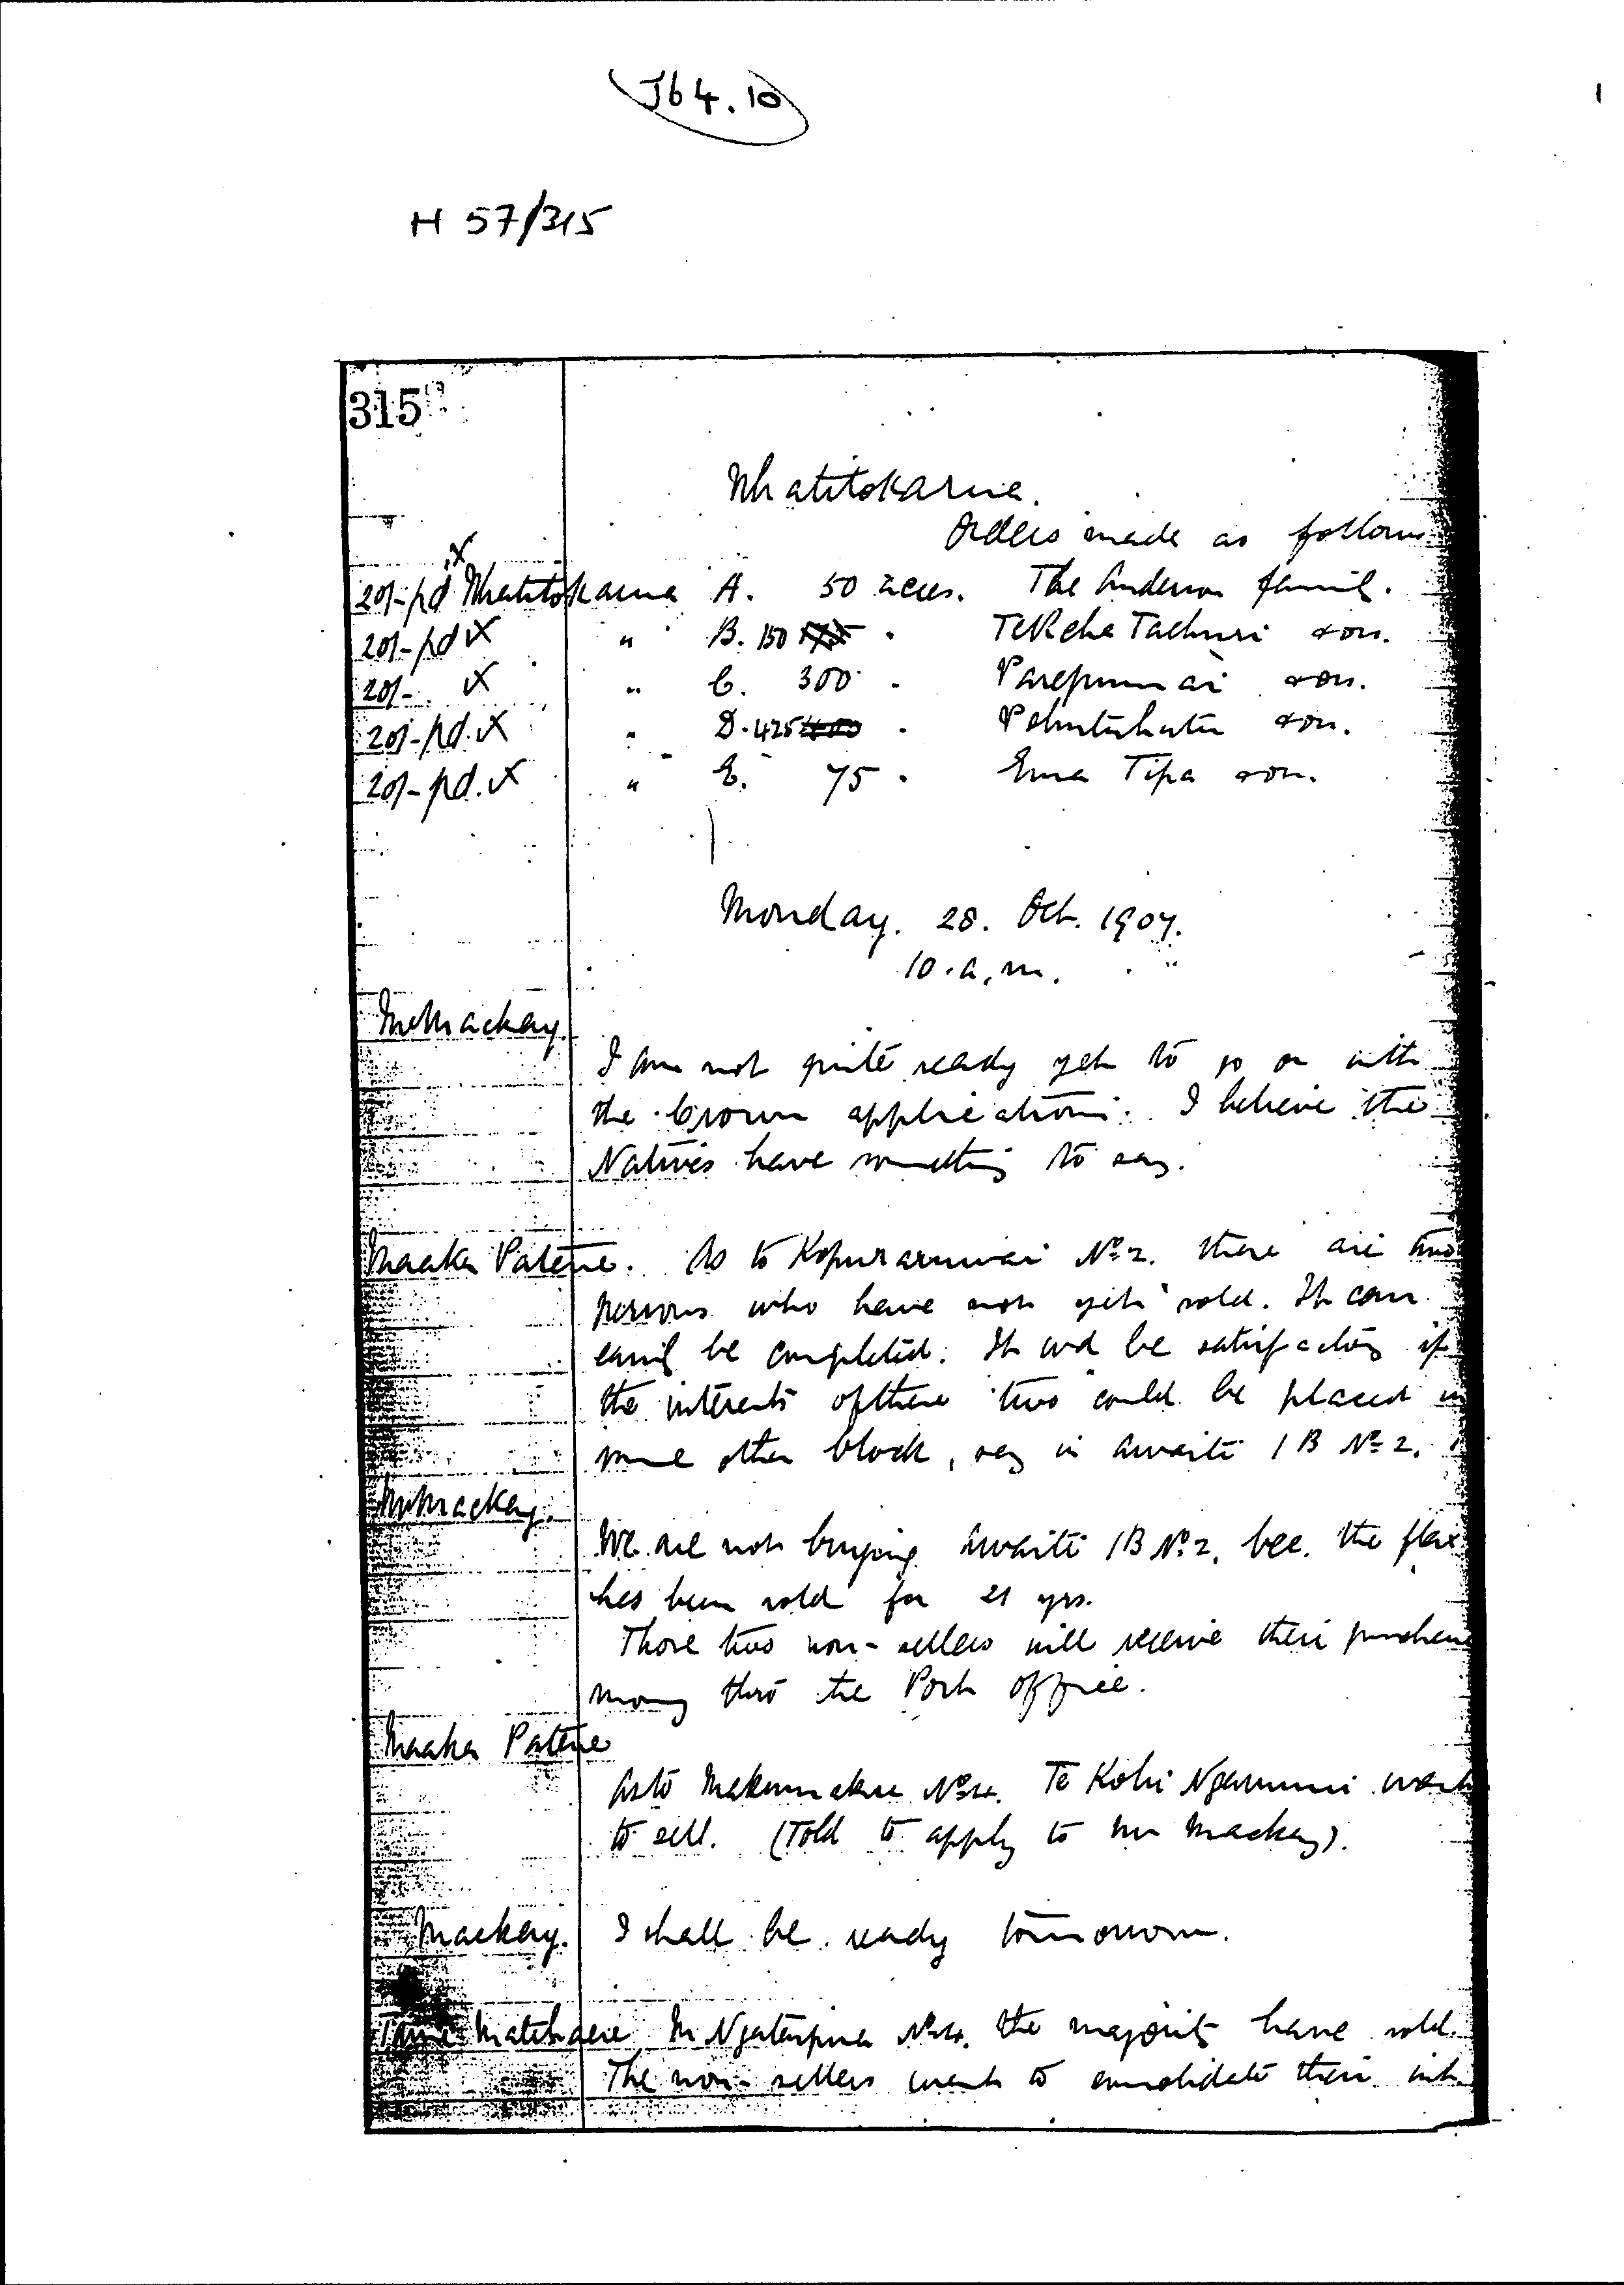 J64.10
H 57/315
315
Whatitokarua.
Orders made as follows
20/- pd X Whatitokarua A. 50 acres. The Anderson family.
20/- pd X " B. 150 175 . Te Reha Taehuri & ors.
20/- X " C. 300 . Parepumai & ors.
20/- pd. X " D. 425 400 . & ors.
20/- pd. X " E. 75 . Ema Tipa & ors.
Monday. 28. Oct. 1907.
10. a.m.
Mr Mackay.
I am not quite ready yet to go on with
the Crown applications. I believe the
Natives have something to say.
Maaka Patene. As to Kopuraruwai No 2. there are two
persons who have not yet sold. It can
easily be completed. It wd be satisfactory if
the interests of these two could be placed in
some other block, say in Awaiti 1B No 2.
Mr Mackay.
We are not buying Awaiti 1B No 2, bec. the flax
has been sold for 21 yrs.
Those two non-sellers will receive their purchase
money thro the Post office.
Maaka Patene
As to Makumakau No 4. Te Kohi Ngarumui wants
to sell. (Told to apply to Mr Mackay).
Mackay. I shall be ready tomorrow.
In No 4. the majority have sold.
The non-sellers want to consolidate their int.